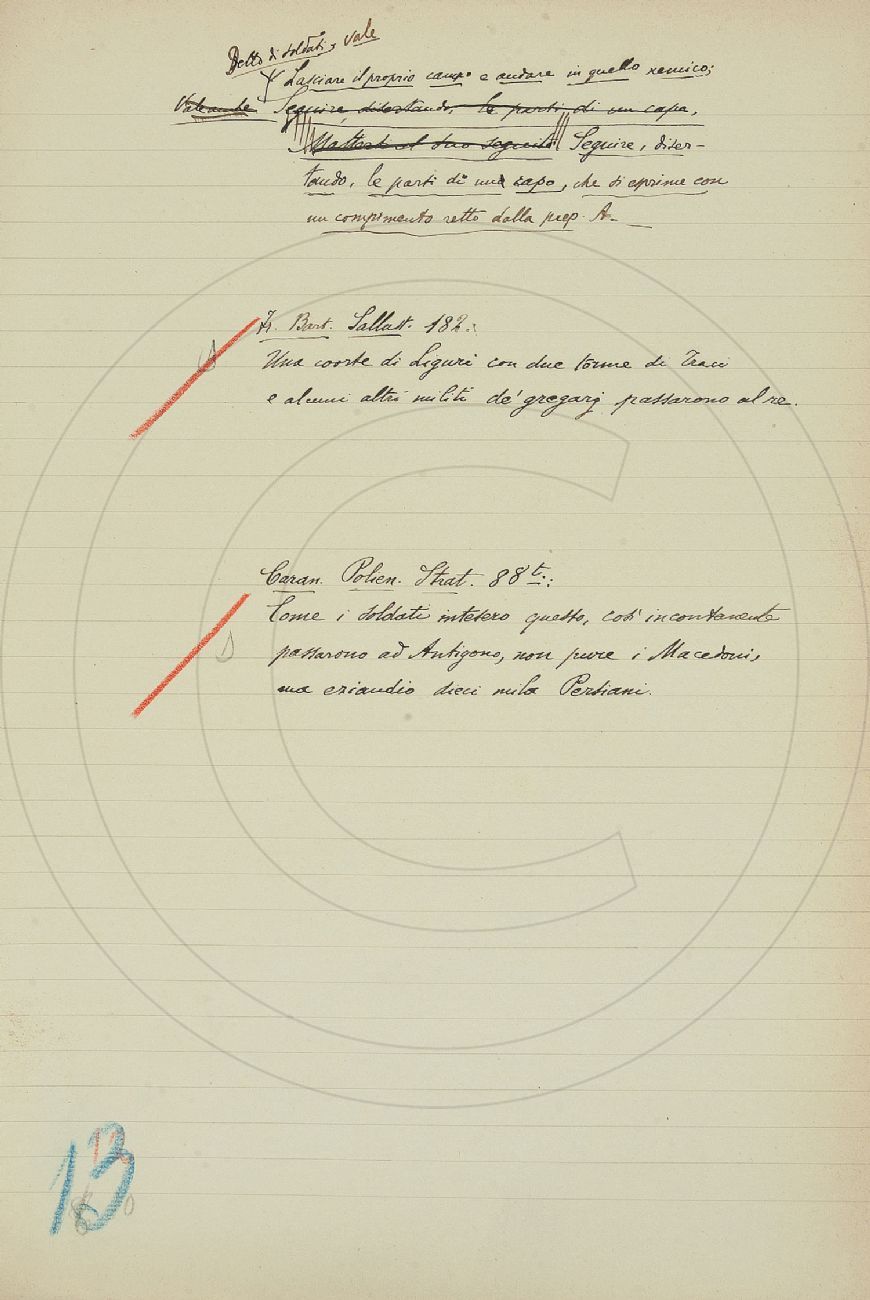 Detto di soldati, vale
Lasciare il proprio campo e andare in quello nemico;
Vale anche Seguire, disertando, le parti di un capo,
Mettersi al suo seguito Seguire, diser-
tando, le parti di un capo, che si esprime con
un compimento retto dalla prep. A. —
Fr. Bart. Sallust. 182.:
Una coorte di Liguri con due torme di Traci
e alcuni altri militi de' gregarj passarono al re.
Caran. Polien. Strat. 88t.:
Come i soldati intesero questo, così incontanente
passarono ad Antigono, non pure i Macedoni,
ma eziandio dieci mila Persiani.
13